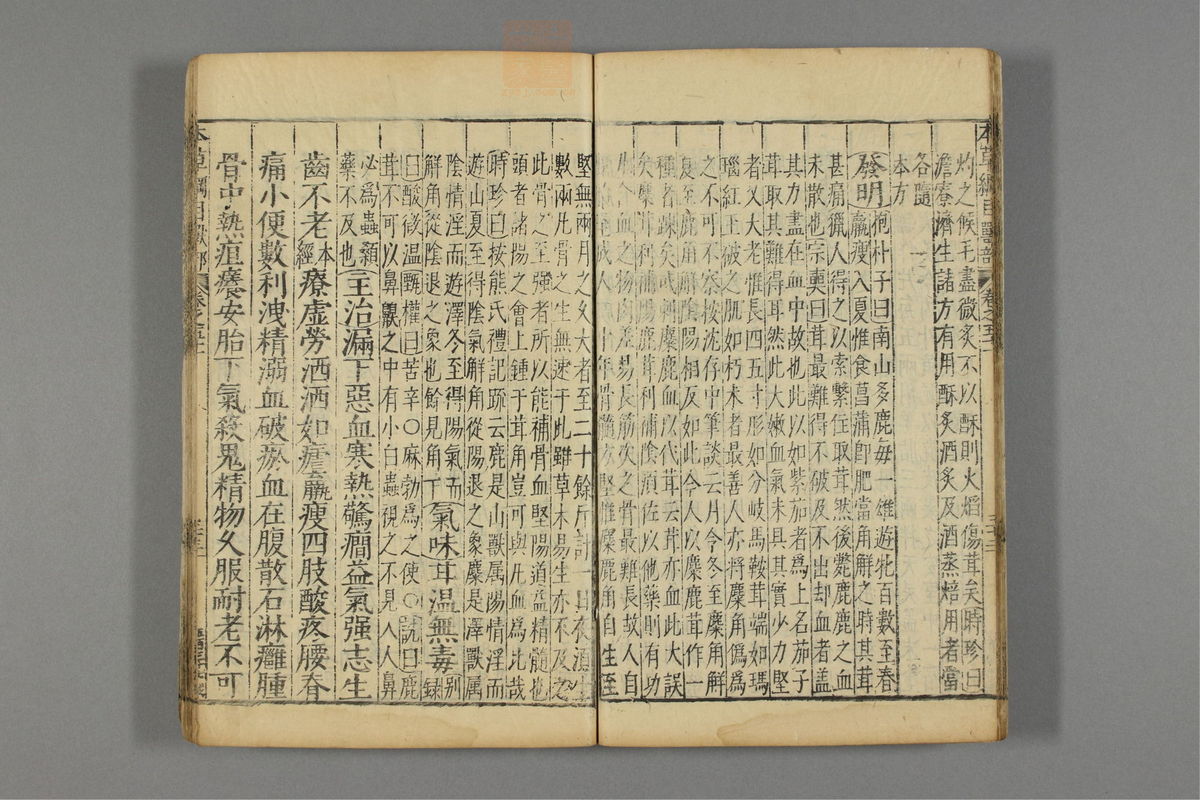 本草綱目獸部 卷之五十一
灼之候毛盡微炙不以酥則火焰傷茸矣時珍曰
澹寮濟生諸方有用酥炙酒炙及酒蒸焙用者當
各隨
本方
發明抱朴子曰南山多鹿每一雄遊牝百數至春
羸瘦入夏惟食菖蒲即肥當角解之時其茸
甚痛獵人得之以索繫住取茸然後斃鹿鹿之血
未散也宗奭曰茸最難得不破及不出却血者蓋
其力盡在血中故也此以如紫茄者爲上名茄子
茸取其難得耳然此大嫩血氣未具其實少力堅
者又大老惟長四五寸形如分岐馬鞍茸端如瑪
瑙紅玉破之肌如朽木者最善人亦將麋角僞爲
之不可不察按沈存中筆談云月令冬至麋角解
夏至鹿角解陰陽相反如此今人以麋鹿茸作一
種者疎矣或刺麋鹿血以代茸云茸亦血此大誤
矣麋茸利補陽鹿茸利補陰須佐以他藥則有功
凡含血之物肉差易長筋次之骨最難長故人自
至成人二十年骨髓方堅惟麋鹿角自生至
堅無兩月之久大者至二十餘斤計一日夜須生
數兩凡骨之生無速于此雖草木易生亦不及之
此骨之至强者所以能補骨血堅陽道益精髓也
頭者諸陽之會上鍾于茸角豈可與凡血爲比哉
時珍曰按熊氏禮記疏云鹿是山獸属陽情淫而
遊山夏至得陰氣解角從陽退之象麋是澤獸属
陰情淫而遊澤冬至得陽氣而
解角從陰退之象也餘見角下 氣味茸温無毒别録
曰酸微温甄權曰苦辛○麻勃爲之使○詵曰鹿
茸不可以鼻齅之中有小白蟲視之不見人人鼻
必爲蟲顙
藥不及也 主治漏下惡血寒熱驚癇益氣强志生
齒不老本經療虛勞洒洒如瘧羸瘦四肢酸疼腰脊
痛小便數利洩精溺血破瘀血在腹散石淋癰腫
骨中熱疽癢安胎下氣殺鬼精物久服耐老不可
本草綱目獸部 卷之五十一